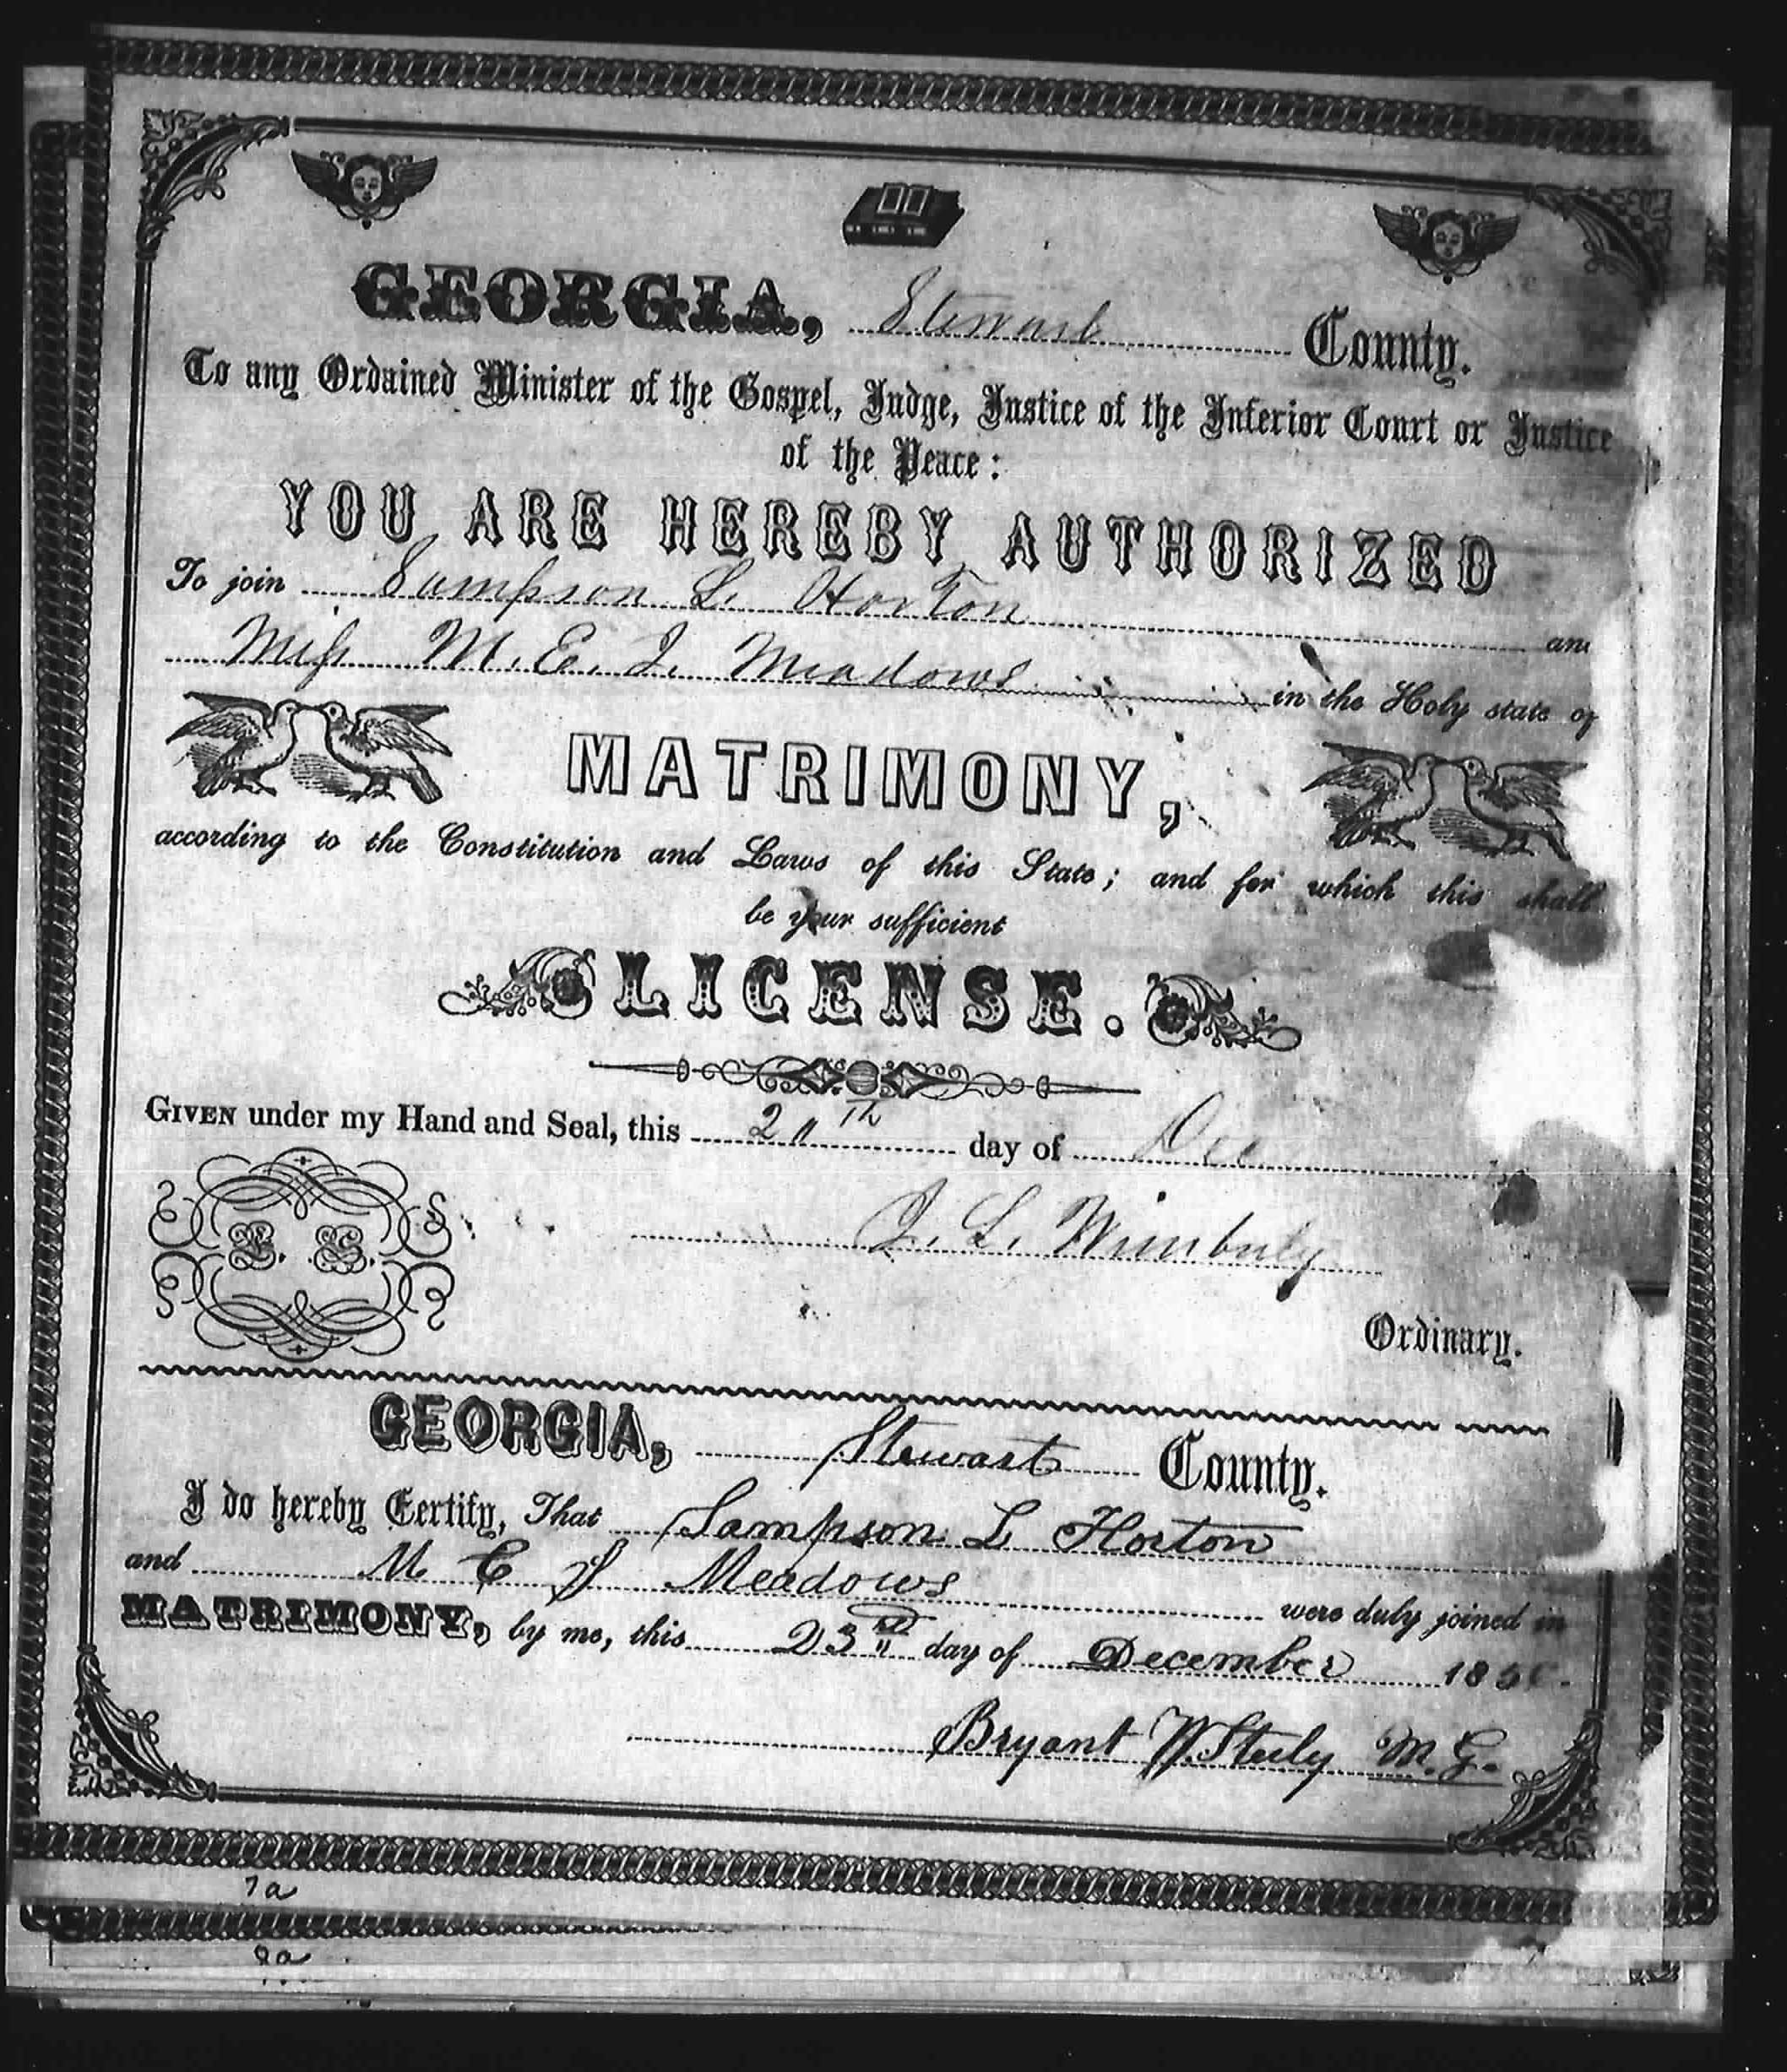 GEORGIA, Stewart County.
To any Ordained Minister of the Gospel, Judge, Justice of the Inferior Court or Justice
of the Peace:
YOU ARE HEREBY AUTHORIZED
To join Sampson L. Horton an
Miss M. E. J. Meadows in the Holy state of
MATRIMONY,
according to the Constitution and Laws of this State; and for which this shall
be your sufficient
LICENSE.
GIVEN under my Hand and Seal, this 20th day of Dec
J. L. Wimberly
L. S.
Ordinary.
GEORGIA, Stewart County.
I do hereby Certify, That Sampson L Horton
and M E J Meadows were duly joined in
MATRIMONY, by me, this 23rd day of December 18
Bryant W. Steely M. G.
7a
8a